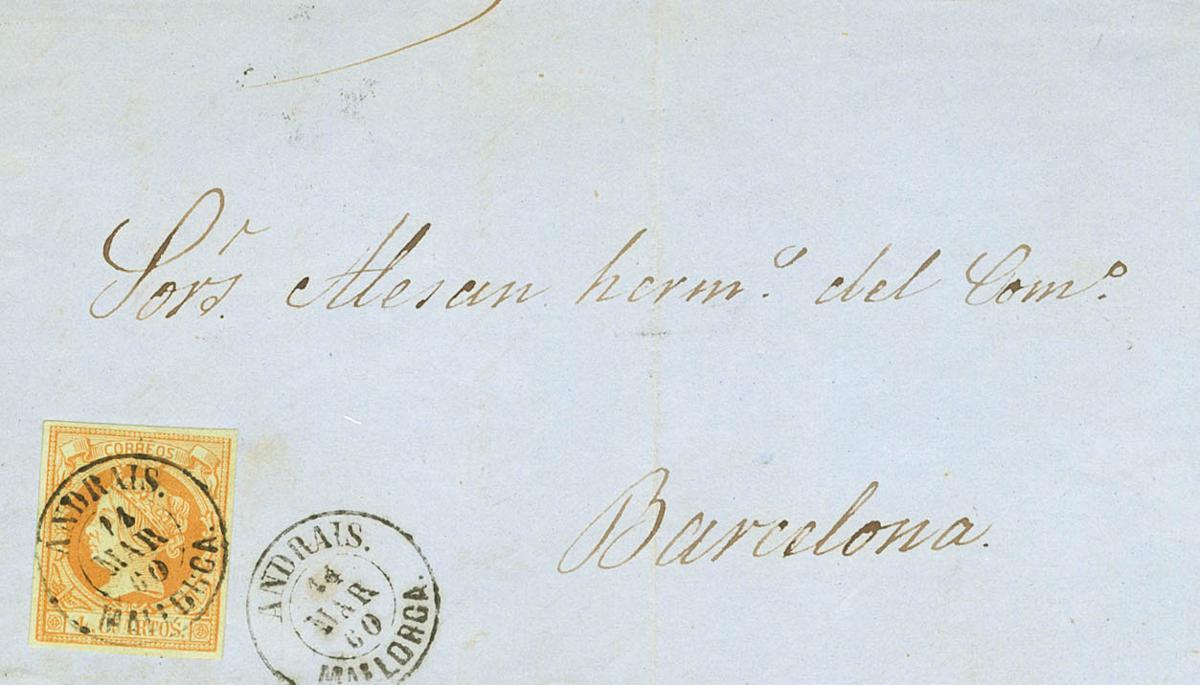 Sors.ʳ Alesan herm.º del Com.º
Barcelona.
CORREOS
ANDRAIS.
14
MAR
60
MALLORCA.
4 CUARTOS.
ANDRAIS.
14
MAR
60
MALLORCA.